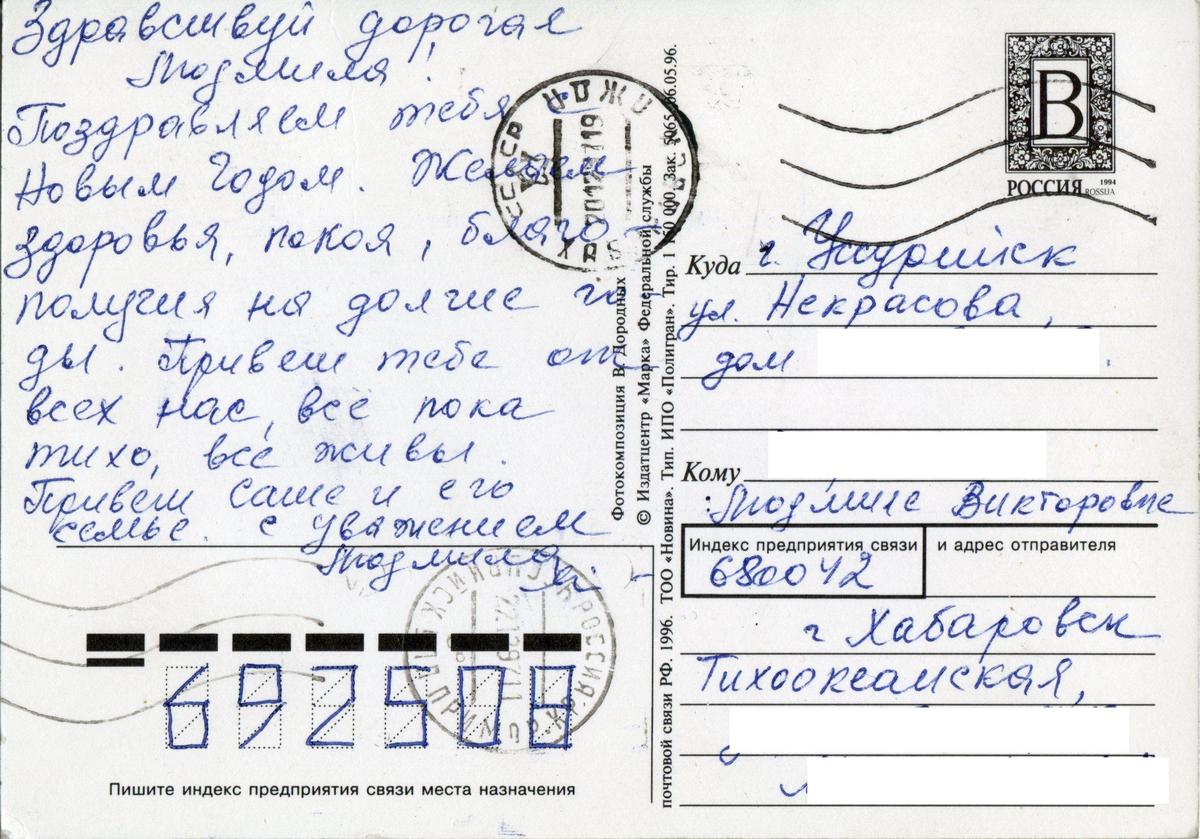 Здравствуй дорогая
Людмила!
Поздравляем тебя с
Новым Годом. Желаем
здоровья, покоя, благо-
получия на долгие го-
ды. Привет тебе от
всех нас, всё пока
тихо, все живы.
Привет Саше и его
семье. С уважением
Людмила
Пишите индекс предприятия связи места назначения
692508
Фотокомпозиция В. Дородных
© Издатцентр «Марка» Федеральной службы
почтовой связи РФ. 1996. ТОО «Новина». Тип. ИПО «Полигран». Тир. 1 Зак. 06.05.96.
В
РОССИЯ 1994
ROSSIJA
Куда г. Уссурийск
ул. Некрасова,
дом
Кому
Людмиле Викторовне
Индекс предприятия связи и адрес отправителя
680042
г Хабаровск
Тихоокеанская,
РОССИЯ